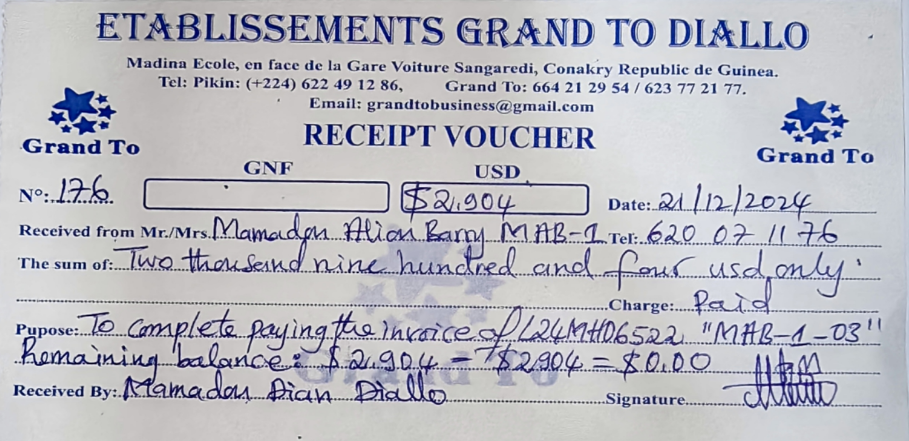 ETABLISSEMENTS GRAND TO DIALLO
Madina Ecole, en face de la Gare Voiture Sangaredi, Conakry Republic de Guinea.
Tel: Pikin: (+224) 622 49 12 86, Grand To: 664 21 29 54 / 623 77 21 77.
Email: grandtobusiness@gmail.com
Grand To
RECEIPT VOUCHER
Grand To
GNF USD
Nº: 176. $2.904 Date: 21/12/2024
Received from Mr./Mrs. Mamadou Alion Barry MAB-1 Tel: 620 07 11 76
The sum of: Two thousand nine hundred and four usd only.
Charge: Paid
Pupose: To Complete paying the invoice of L24MH06522 "MAB-1-03"
Remaining balance: $2.904 - $2904 = $0.00
Received By: Mamadou Dian Diallo Signature